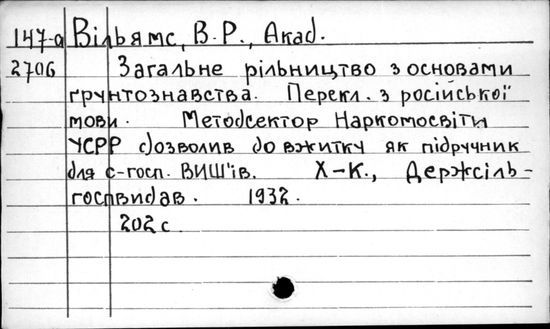 147-а Вільямс, В. Р., Акад.
2706 Загальне рільництво з основами
ґрунтознавства. Перекл. з російської
мови. Методсектор Наркомосвіти
УСРР дозволив до вжитку як підручник
для с-госп. ВИШ'ів. Х-К., Держсіль-
госпвидав. 1932.
202 с.